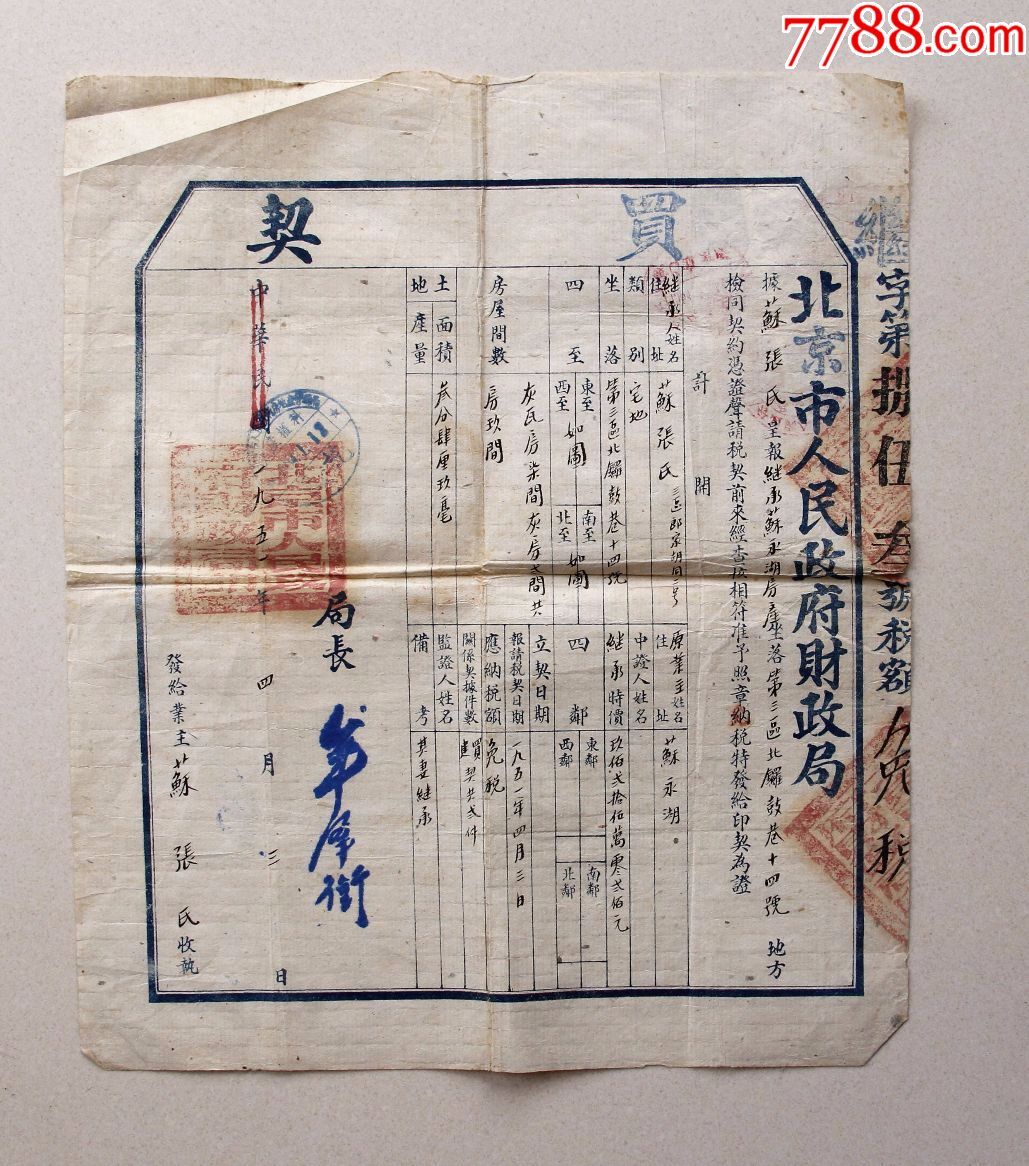 7788.com
買契
繼字第捌伍叁號稅額免稅
北京市人民政府財政局
據蘇張氏呈報繼承蘇永湖房座落第三區北鑼鼓巷十四號地方
檢同契約憑證聲請稅契前來經查核相符准予照章納稅特發給印契為證
計開
繼承人姓名 蘇張氏
住址 三區郎家胡同三号
原業主姓名 蘇永湖
住址
類別 宅地
中證人姓名
坐落 第三區北鑼鼓巷十四號
繼承時價 玖佰弍拾伍萬零弍佰元
四至 東至 如圖 南至 如圖
西至 北至
四鄰 東鄰 南鄰
西鄰 北鄰
房屋間數 灰瓦房柒間灰房弍間共
房玖間
立契日期
報請稅契日期 一九五一年四月三日
應納稅額 免稅
土地 面積 叁分肆厘玖毫
產量
關係契據件數 買契共弍件
監證人姓名
備考 其妻繼承
局長
中華民國一九五一年四月三日
發給業主蘇張氏收執